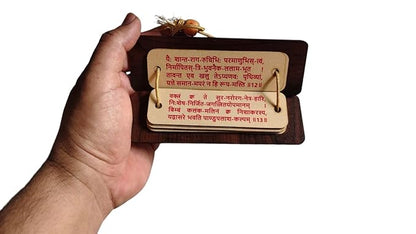 यैः शान्त-राग-रुचिभिः परमाणुभिस्-त्वं,
निर्मापितस्-त्रि-भुवनैक-ललाम-भूत !
तावन्त एव खलु तेऽप्यणवः पृथिव्यां,
यत्ते समान-मपरं न हि रूप-मस्ति ॥12॥
वक्त्रं क्व ते सुर-नरोरग-नेत्र-हारि,
निःशेष-निर्जित-जगत्त्रितयोपमानम्
बिम्बं कलंक-मलिनं क्व निशाकरस्य,
यद्वासरे भवति पाण्डुपलाश-कल्पम् ॥13॥